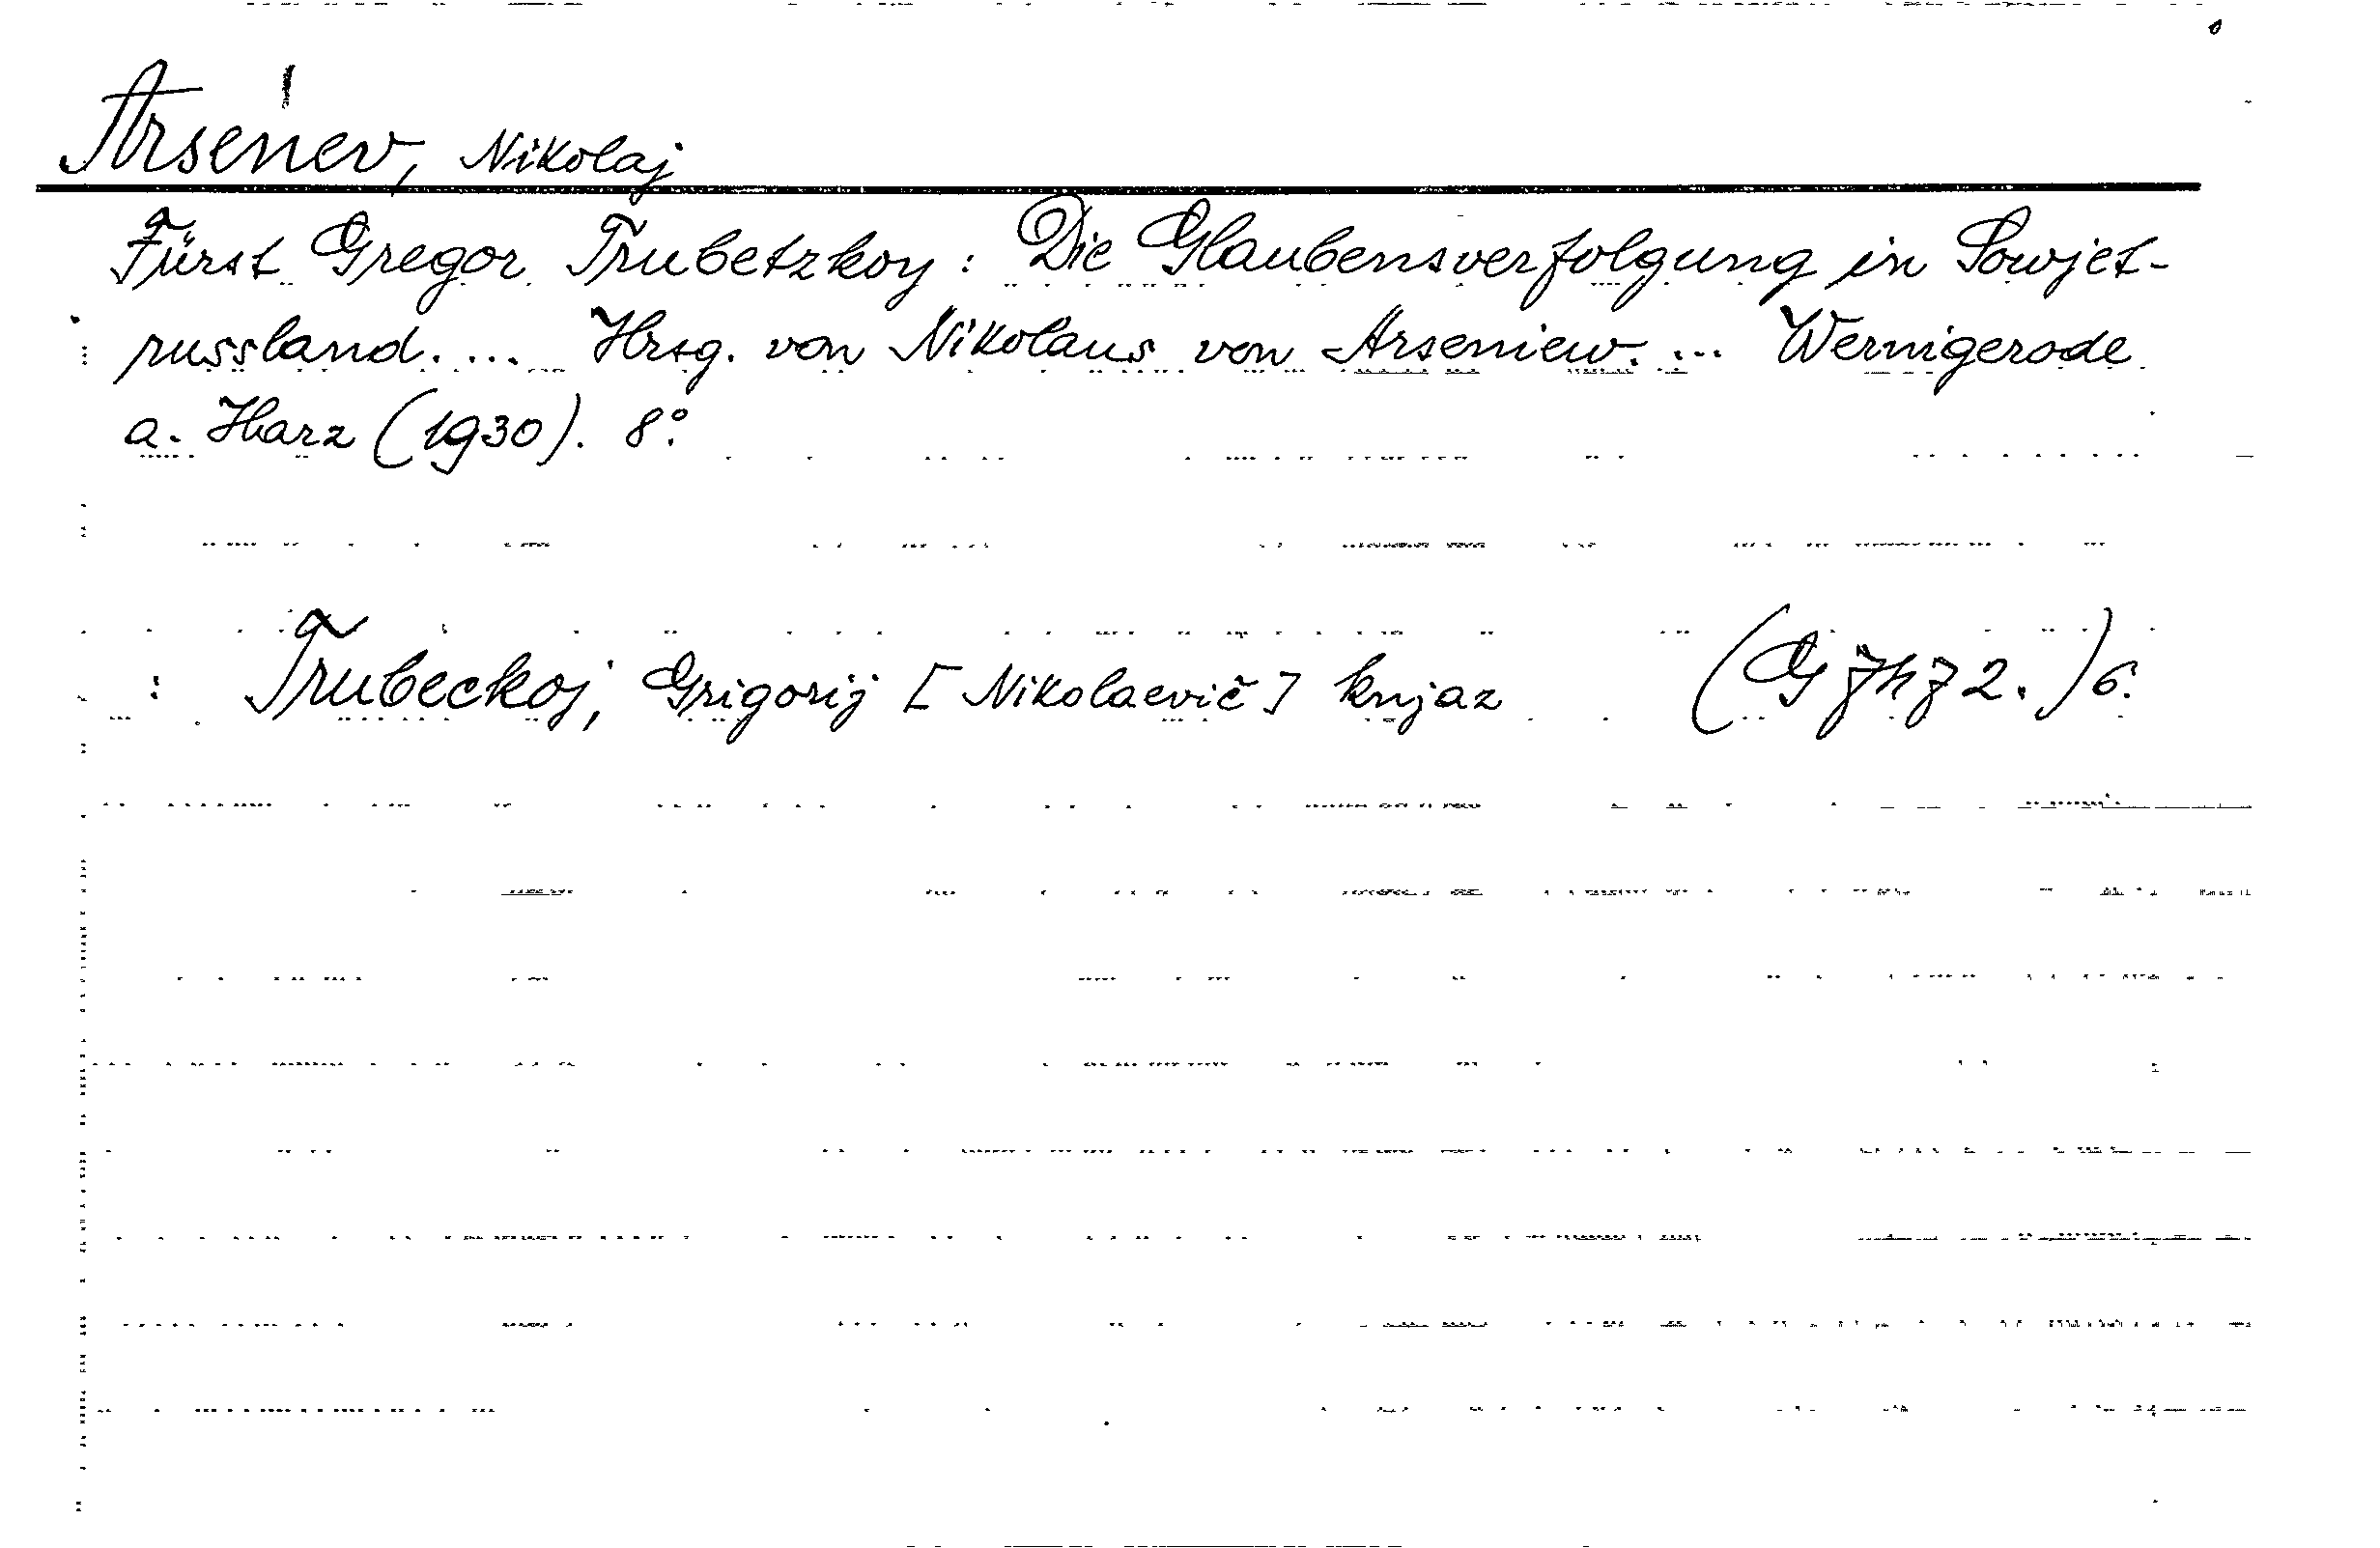 Arsénev, Nikolaj
Fürst Gregor Trubetzkoy: Die Glaubensverfolgung in Sowjet-
russland. ... Hrsg. von Nikolaus von Arseniew. ... Wernigerode
a. Harz (1930). 8°.
: Trubeckoj, Grigorij [Nikolaevič] knjaz